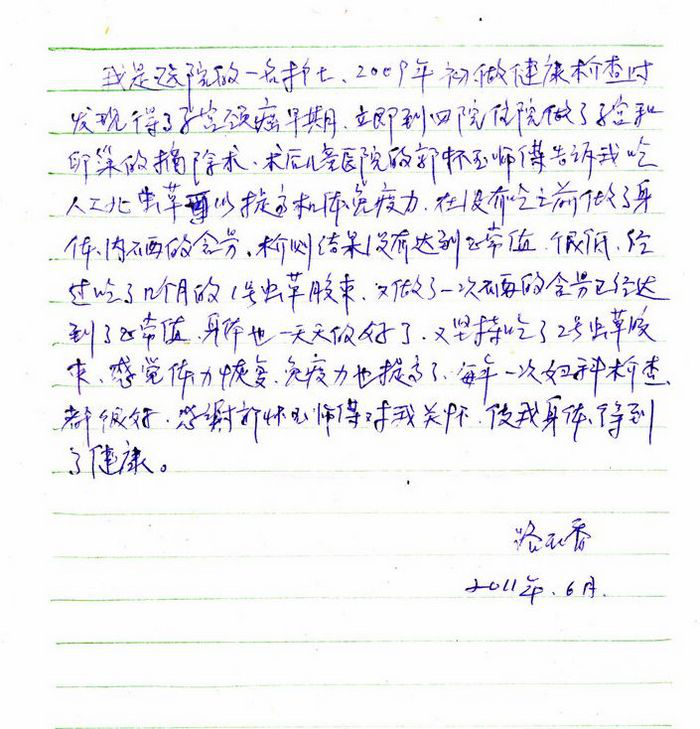 我是医院的一名护士、2009年初做健康检查时
发现得了子宫颈癌早期、立即到四院住院做了子宫和
卵巢的摘除术、术后儿童医院的郭怀玉师傅告诉我吃
人工北虫草可以提高机体免疫力、在没有吃之前做了身
体内硒的含量、检测结果没有达到正常值、很低、经
过吃了几个月的1号虫草胶束、又做了一次硒的含量已经达
到了正常值、身体也一天天的好了、又坚持吃了2号虫草胶
束、感觉体力恢复、免疫力也提高了、每年一次妇科检查、
都很好、感谢郭怀玉师傅对我关怀、使我身体得到
了健康。
香
2011年、6月.